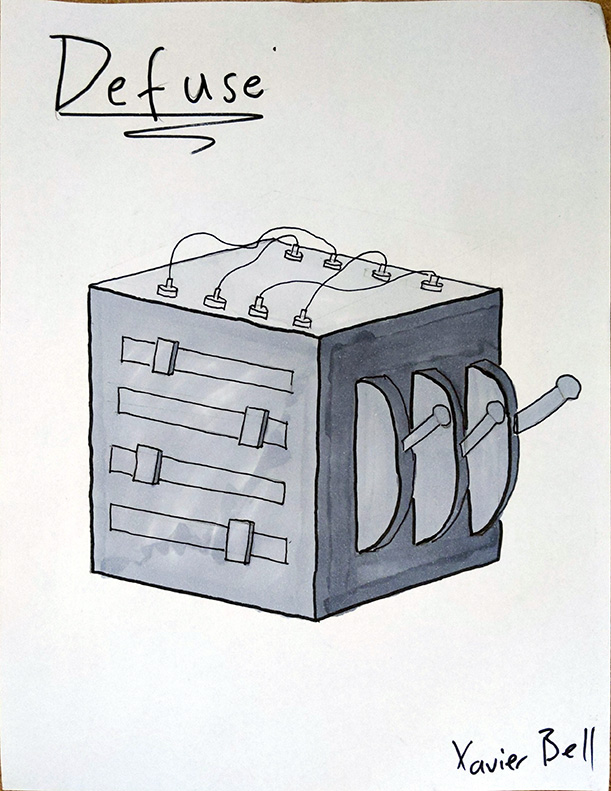 Defuse
Xavier Bell